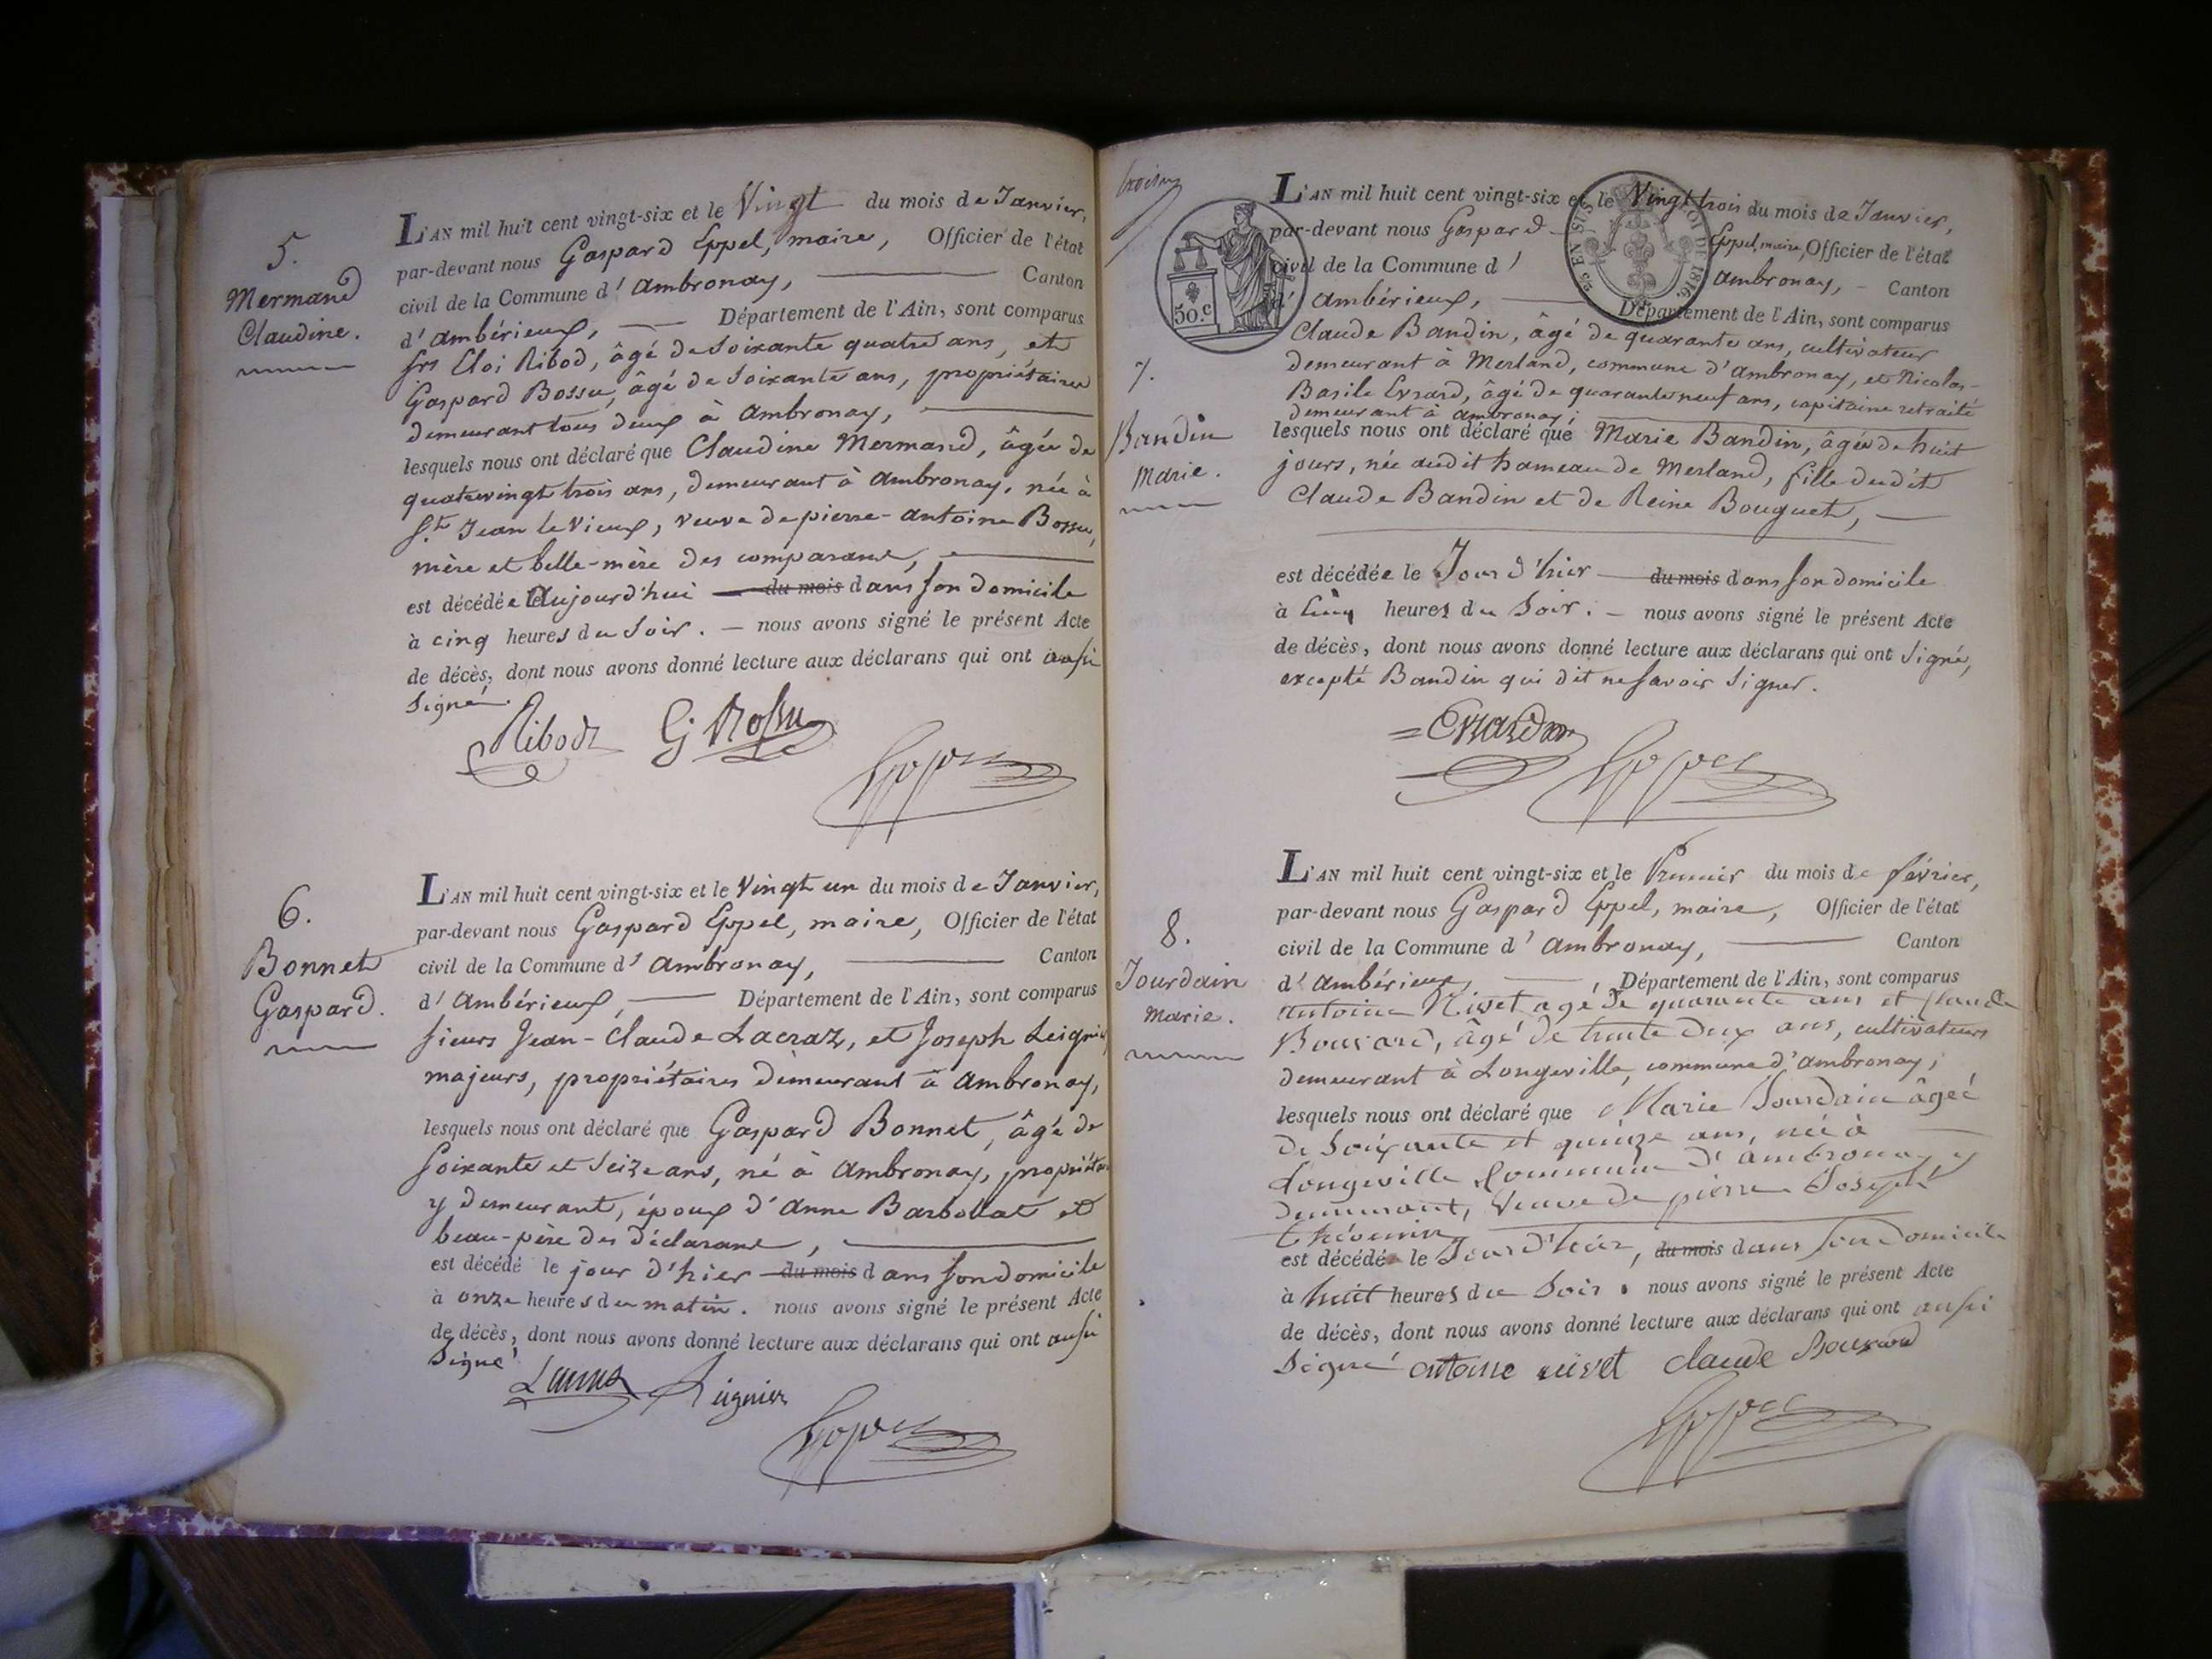 5.
Mermand
Claudine.
L'AN mil huit cent vingt-six et le Vingt du mois de Janvier,
par-devant nous Gaspard Eppel, maire, Officier de l'état
civil de la Commune d' ambronay, Canton
d' ambérieux, Département de l'Ain, sont comparus
srs Eloi Ribod, âgé de Soixante quatre ans, et
Gaspard Bossu, âgé de Soixante ans, propriétaires
demeurant tous deux à ambronay,
lesquels nous ont déclaré que Claudine Mermand, âgée de
quatrevingt trois ans, demeurant à ambronay, née à
St. Jean le Vieux, veuve de pierre-antoine Bossu,
mère et belle-mère des comparans,
est décédée le aujourd'hui du mois dans son domicile
à cinq heures du Soir. nous avons signé le présent Acte
de décès, dont nous avons donné lecture aux déclarans qui ont aussi
Signé.
Ribod G Bossu
Eppel
6.
Bonnet
Gaspard.
L'AN mil huit cent vingt-six et le Vingt un du mois de Janvier,
par-devant nous Gaspard Eppel, maire, Officier de l'état
civil de la Commune d' ambronay, Canton
d' ambérieux, Département de l'Ain, sont comparus
sieurs Jean-Claude Lacraz, et Joseph Leignier,
majeurs, propriétaires demeurant à ambronay,
lesquels nous ont déclaré que Gaspard Bonnet, âgé de
Soixante et Seize ans, né à ambronay, propriétaire
y demeurant, époux d'anne Barbollat et
beau-père des déclarans,
est décédé le jour d'hier du mois dans son domicile
à onze heures du matin. nous avons signé le présent Acte
de décès, dont nous avons donné lecture aux déclarans qui ont aussi
Signé
Leignier
Eppel
troisieme
50.C
25 EN SUS LOI DE 1816.
7.
Bandin
Marie.
L'AN mil huit cent vingt-six et le Vingt trois du mois de Janvier,
par-devant nous Gaspard Eppel, maire, Officier de l'état
civil de la Commune d' ambronay, Canton
d' ambérieux, Département de l'Ain, sont comparus
Claude Bandin, âgé de quarante ans, cultivateur
demeurant à Merland, commune d'ambronay, et Nicolas-
Basile Evrard, âgé de quarante neuf ans, capitaine retraité
demeurant à ambronay;
lesquels nous ont déclaré que Marie Bandin, âgée de huit
jours, née audit hameau de Merland, fille dudit
Claude Bandin et de Reine Bouquet,
est décédée le Jour d'hier du mois dans son domicile
à cinq heures du Soir. nous avons signé le présent Acte
de décès, dont nous avons donné lecture aux déclarans qui ont signé,
excepté Bandin qui dit ne savoir signer.
Evrard
Eppel
8.
Jourdain
Marie.
L'AN mil huit cent vingt-six et le Premier du mois de février,
par-devant nous Gaspard Eppel, maire, Officier de l'état
civil de la Commune d' ambronay, Canton
d' ambérieux, Département de l'Ain, sont comparus
antoine Nivet agé de quarante ans et Claude
Bouvard, âgé de trente deux ans, cultivateurs
demeurant à Longeville, commune d'ambronay;
lesquels nous ont déclaré que Marie Jourdain âgée
de Soixante et quinze ans, née à
Longeville Commune d'ambronay y
demeurant, Veuve de pierre Joseph
thévenin
est décédée le Jour d'hier, du mois dans son domicile
à huit heures du Soir. nous avons signé le présent Acte
de décès, dont nous avons donné lecture aux déclarans qui ont aussi
Signé antoine nivet claude Bouvard
Eppel